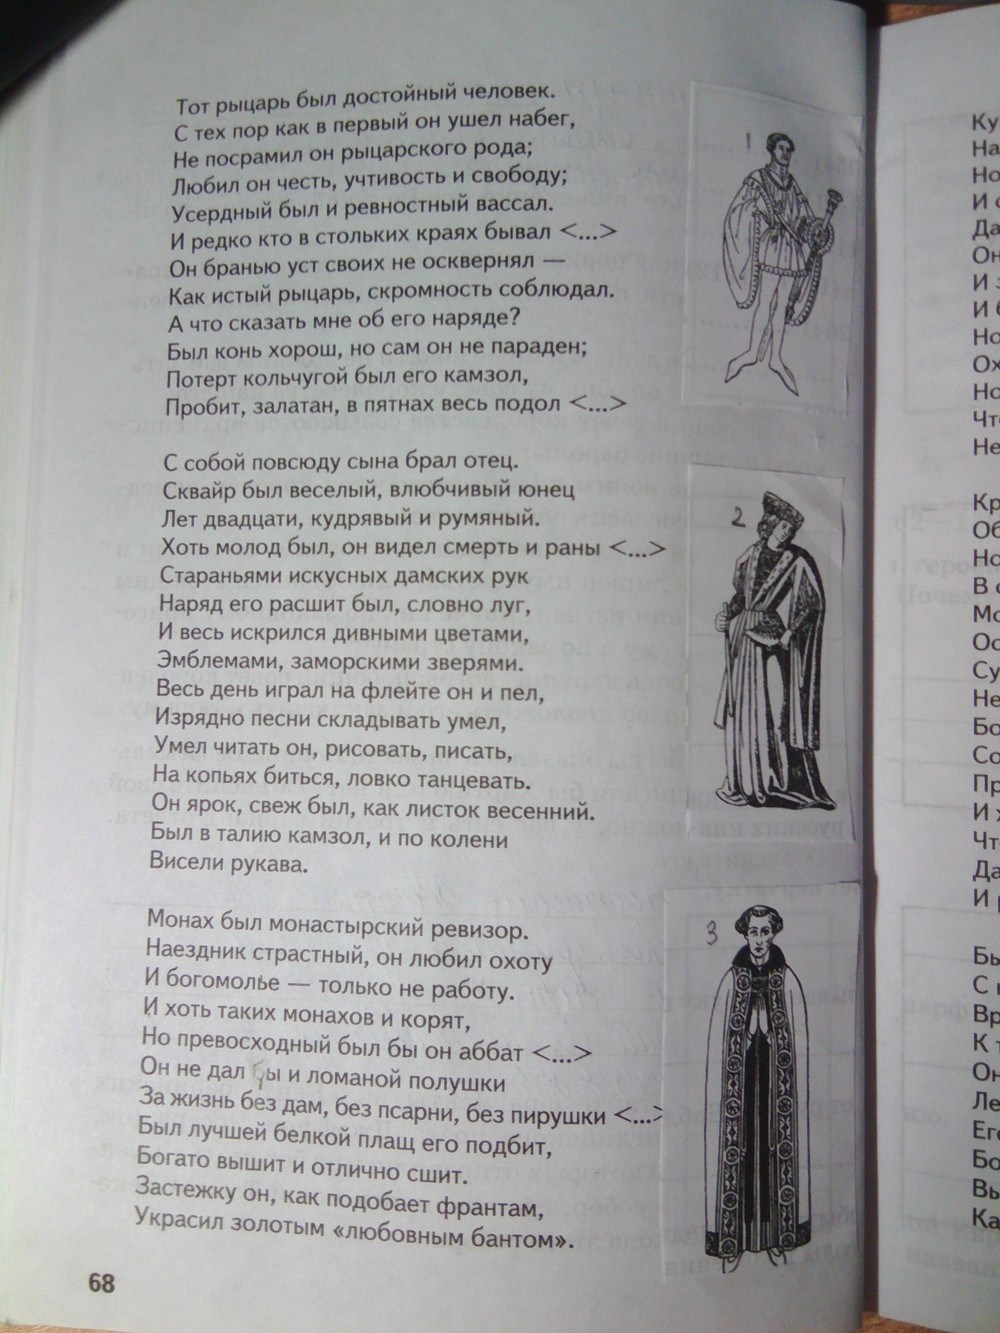 Тот рыцарь был достойный человек.
С тех пор как в первый он ушел набег,
Не посрамил он рыцарского рода;
Любил он честь, учтивость и свободу;
Усердный был и ревностный вассал.
И редко кто в стольких краях бывал <...>
Он бранью уст своих не осквернял —
Как истый рыцарь, скромность соблюдал.
А что сказать мне об его наряде?
Был конь хорош, но сам он не параден;
Потерт кольчугой был его камзол,
Пробит, залатан, в пятнах весь подол <...>
1
С собой повсюду сына брал отец.
Сквайр был веселый, влюбчивый юнец
Лет двадцати, кудрявый и румяный.
Хоть молод был, он видел смерть и раны <...>
Стараньями искусных дамских рук
Наряд его расшит был, словно луг,
И весь искрился дивными цветами,
Эмблемами, заморскими зверями.
Весь день играл на флейте он и пел,
Изрядно песни складывать умел,
Умел читать он, рисовать, писать,
На копьях биться, ловко танцевать.
Он ярок, свеж был, как листок весенний.
Был в талию камзол, и по колени
Висели рукава.
2
Монах был монастырский ревизор.
Наездник страстный, он любил охоту
И богомолье — только не работу.
И хоть таких монахов и корят,
Но превосходный был бы он аббат <...>
Он не дал бы и ломаной полушки
За жизнь без дам, без псарни, без пирушки <...>
Был лучшей белкой плащ его подбит,
Богато вышит и отлично сшит.
Застежку он, как подобает франтам,
Украсил золотым «любовным бантом».
3
68
Ку
На
Но
И с
Да
Он
И з
И б
Но
Ох
Но
Чт
Не
Кр
Об
Но
В с
Мо
Ос
Су
Не
Бо
Со
Пр
И х
Чт
Да
И р
Бы
С н
Вр
К т
Он
Ле
Ег
Бо
Вы
Ка